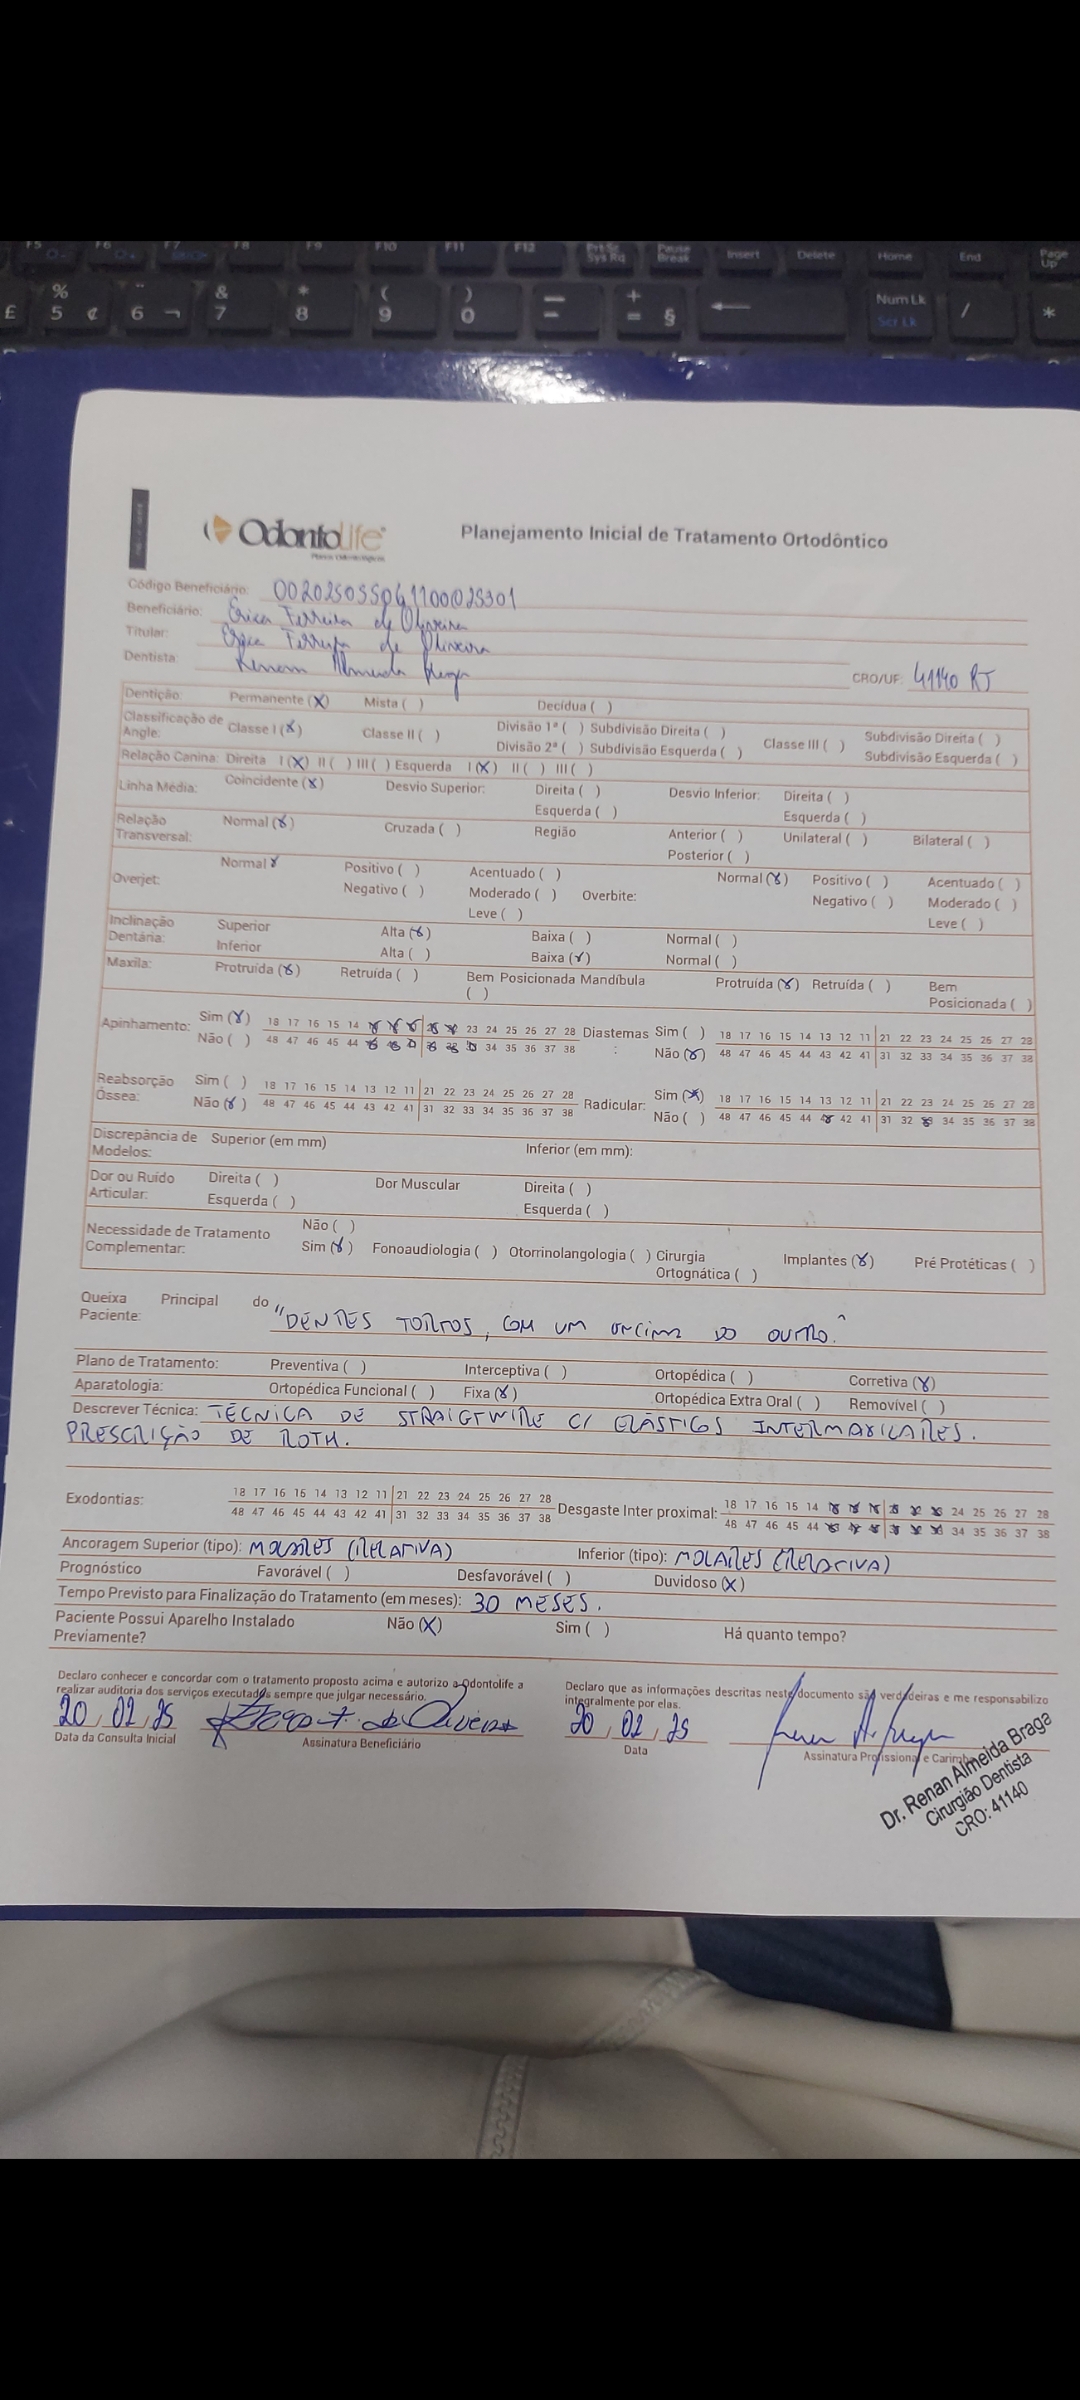 F5 F6 F7 F8 F9 F10 F11 F12 Prt Sc Sys Rq Pause Break Insert Delete Home End Page Up
£ % 5 ¢ 6 ¬ & 7 * 8 ( 9 ) 0 — - + = § Num Lk Scr Lk / *
Odontolife
Planejamento Inicial de Tratamento Ortodôntico
Código Beneficiário:
Beneficiário: Erica Ferreira de Oliveira
Titular: Erica Ferreira de Oliveira
Dentista: Renan Almeida Braga CRO/UF: 41140 RJ
Dentição: Permanente (X) Mista ( ) Decídua ( )
Classificação de Angle: Classe I (X) Classe II ( ) Divisão 1ª ( ) Subdivisão Direita ( ) Classe III ( ) Subdivisão Direita ( )
Divisão 2ª ( ) Subdivisão Esquerda ( ) Subdivisão Esquerda ( )
Relação Canina: Direita I (X) II ( ) III ( ) Esquerda I (X) II ( ) III ( )
Linha Média: Coincidente (X) Desvio Superior: Direita ( ) Desvio Inferior: Direita ( )
Esquerda ( ) Esquerda ( )
Relação Transversal: Normal (X) Cruzada ( ) Região Anterior ( ) Unilateral ( ) Bilateral ( )
Posterior ( )
Overjet: Normal X Positivo ( ) Acentuado ( ) Overbite: Normal (X) Positivo ( ) Acentuado ( )
Negativo ( ) Moderado ( ) Negativo ( ) Moderado ( )
Leve ( ) Leve ( )
Inclinação Dentária: Superior Alta (X) Baixa ( ) Normal ( )
Inferior Alta ( ) Baixa (X) Normal ( )
Maxila: Protruída (X) Retruída ( ) Bem Posicionada ( ) Mandíbula Protruída (X) Retruída ( ) Bem Posicionada ( )
Apinhamento: Sim (X) 18 17 16 15 14 23 24 25 26 27 28 Diastemas: Sim ( ) 18 17 16 15 14 13 12 11 21 22 23 24 25 26 27 28
Não ( ) 48 47 46 45 44 34 35 36 37 38 Não (X) 48 47 46 45 44 43 42 41 31 32 33 34 35 36 37 38
Reabsorção Óssea: Sim ( ) 18 17 16 15 14 13 12 11 21 22 23 24 25 26 27 28 Radicular: Sim (X) 18 17 16 15 14 13 12 11 21 22 23 24 25 26 27 28
Não (X) 48 47 46 45 44 43 42 41 31 32 33 34 35 36 37 38 Não ( ) 48 47 46 45 44 42 41 31 32 34 35 36 37 38
Discrepância de Modelos: Superior (em mm) Inferior (em mm):
Dor ou Ruído Articular: Direita ( ) Dor Muscular Direita ( )
Esquerda ( ) Esquerda ( )
Necessidade de Tratamento Complementar: Não ( )
Sim (X) Fonoaudiologia ( ) Otorrinolangologia ( ) Cirurgia Ortognática ( ) Implantes (X) Pré Protéticas ( )
Queixa Principal do Paciente: "DENTES TORTOS, COM UM ENCIMA DO OUTRO."
Plano de Tratamento: Preventiva ( ) Interceptiva ( ) Ortopédica ( ) Corretiva (X)
Aparatologia: Ortopédica Funcional ( ) Fixa (X) Ortopédica Extra Oral ( ) Removível ( )
Descrever Técnica: TÉCNICA DE STRAIGTWIRE C/ ELÁSTICOS INTERMAXILARES.
PRESCRIÇÃO DE ROTH.
Exodontias: 18 17 16 15 14 13 12 11 21 22 23 24 25 26 27 28 Desgaste Inter proximal: 18 17 16 15 14 24 25 26 27 28
48 47 46 45 44 43 42 41 31 32 33 34 35 36 37 38 48 47 46 45 44 34 35 36 37 38
Ancoragem Superior (tipo): MOLARES (RELATIVA) Inferior (tipo): MOLARES (RELATIVA)
Prognóstico Favorável ( ) Desfavorável ( ) Duvidoso (X)
Tempo Previsto para Finalização do Tratamento (em meses): 30 MESES.
Paciente Possui Aparelho Instalado Previamente? Não (X) Sim ( ) Há quanto tempo?
Declaro conhecer e concordar com o tratamento proposto acima e autorizo a Odontolife a
realizar auditoria dos serviços executados sempre que julgar necessário.
Declaro que as informações descritas neste documento são verdadeiras e me responsabilizo
integralmente por elas.
20, 02, 25 20, 02, 25
Data da Consulta Inicial Assinatura Beneficiário Data Assinatura Profissional e Carimbo
Dr. Renan Almeida Braga
Cirurgião Dentista
CRO: 41140